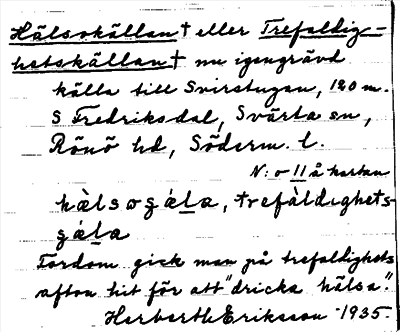 Hälsokällan† eller Trefaldig-
hetskällan† nu igengrävd
källa till Svirstugan, 120 m.
S Fredriksdal, Svärta sn,
Rönö hd, Söderm. l.
N:o 11 å kartan
hàlsoçɛ́la, trefàldighets-
çɛ́la
Fordom gick man på trefaldighets
afton hit för att "dricka hälsa".
Herbert Eriksson 1935.